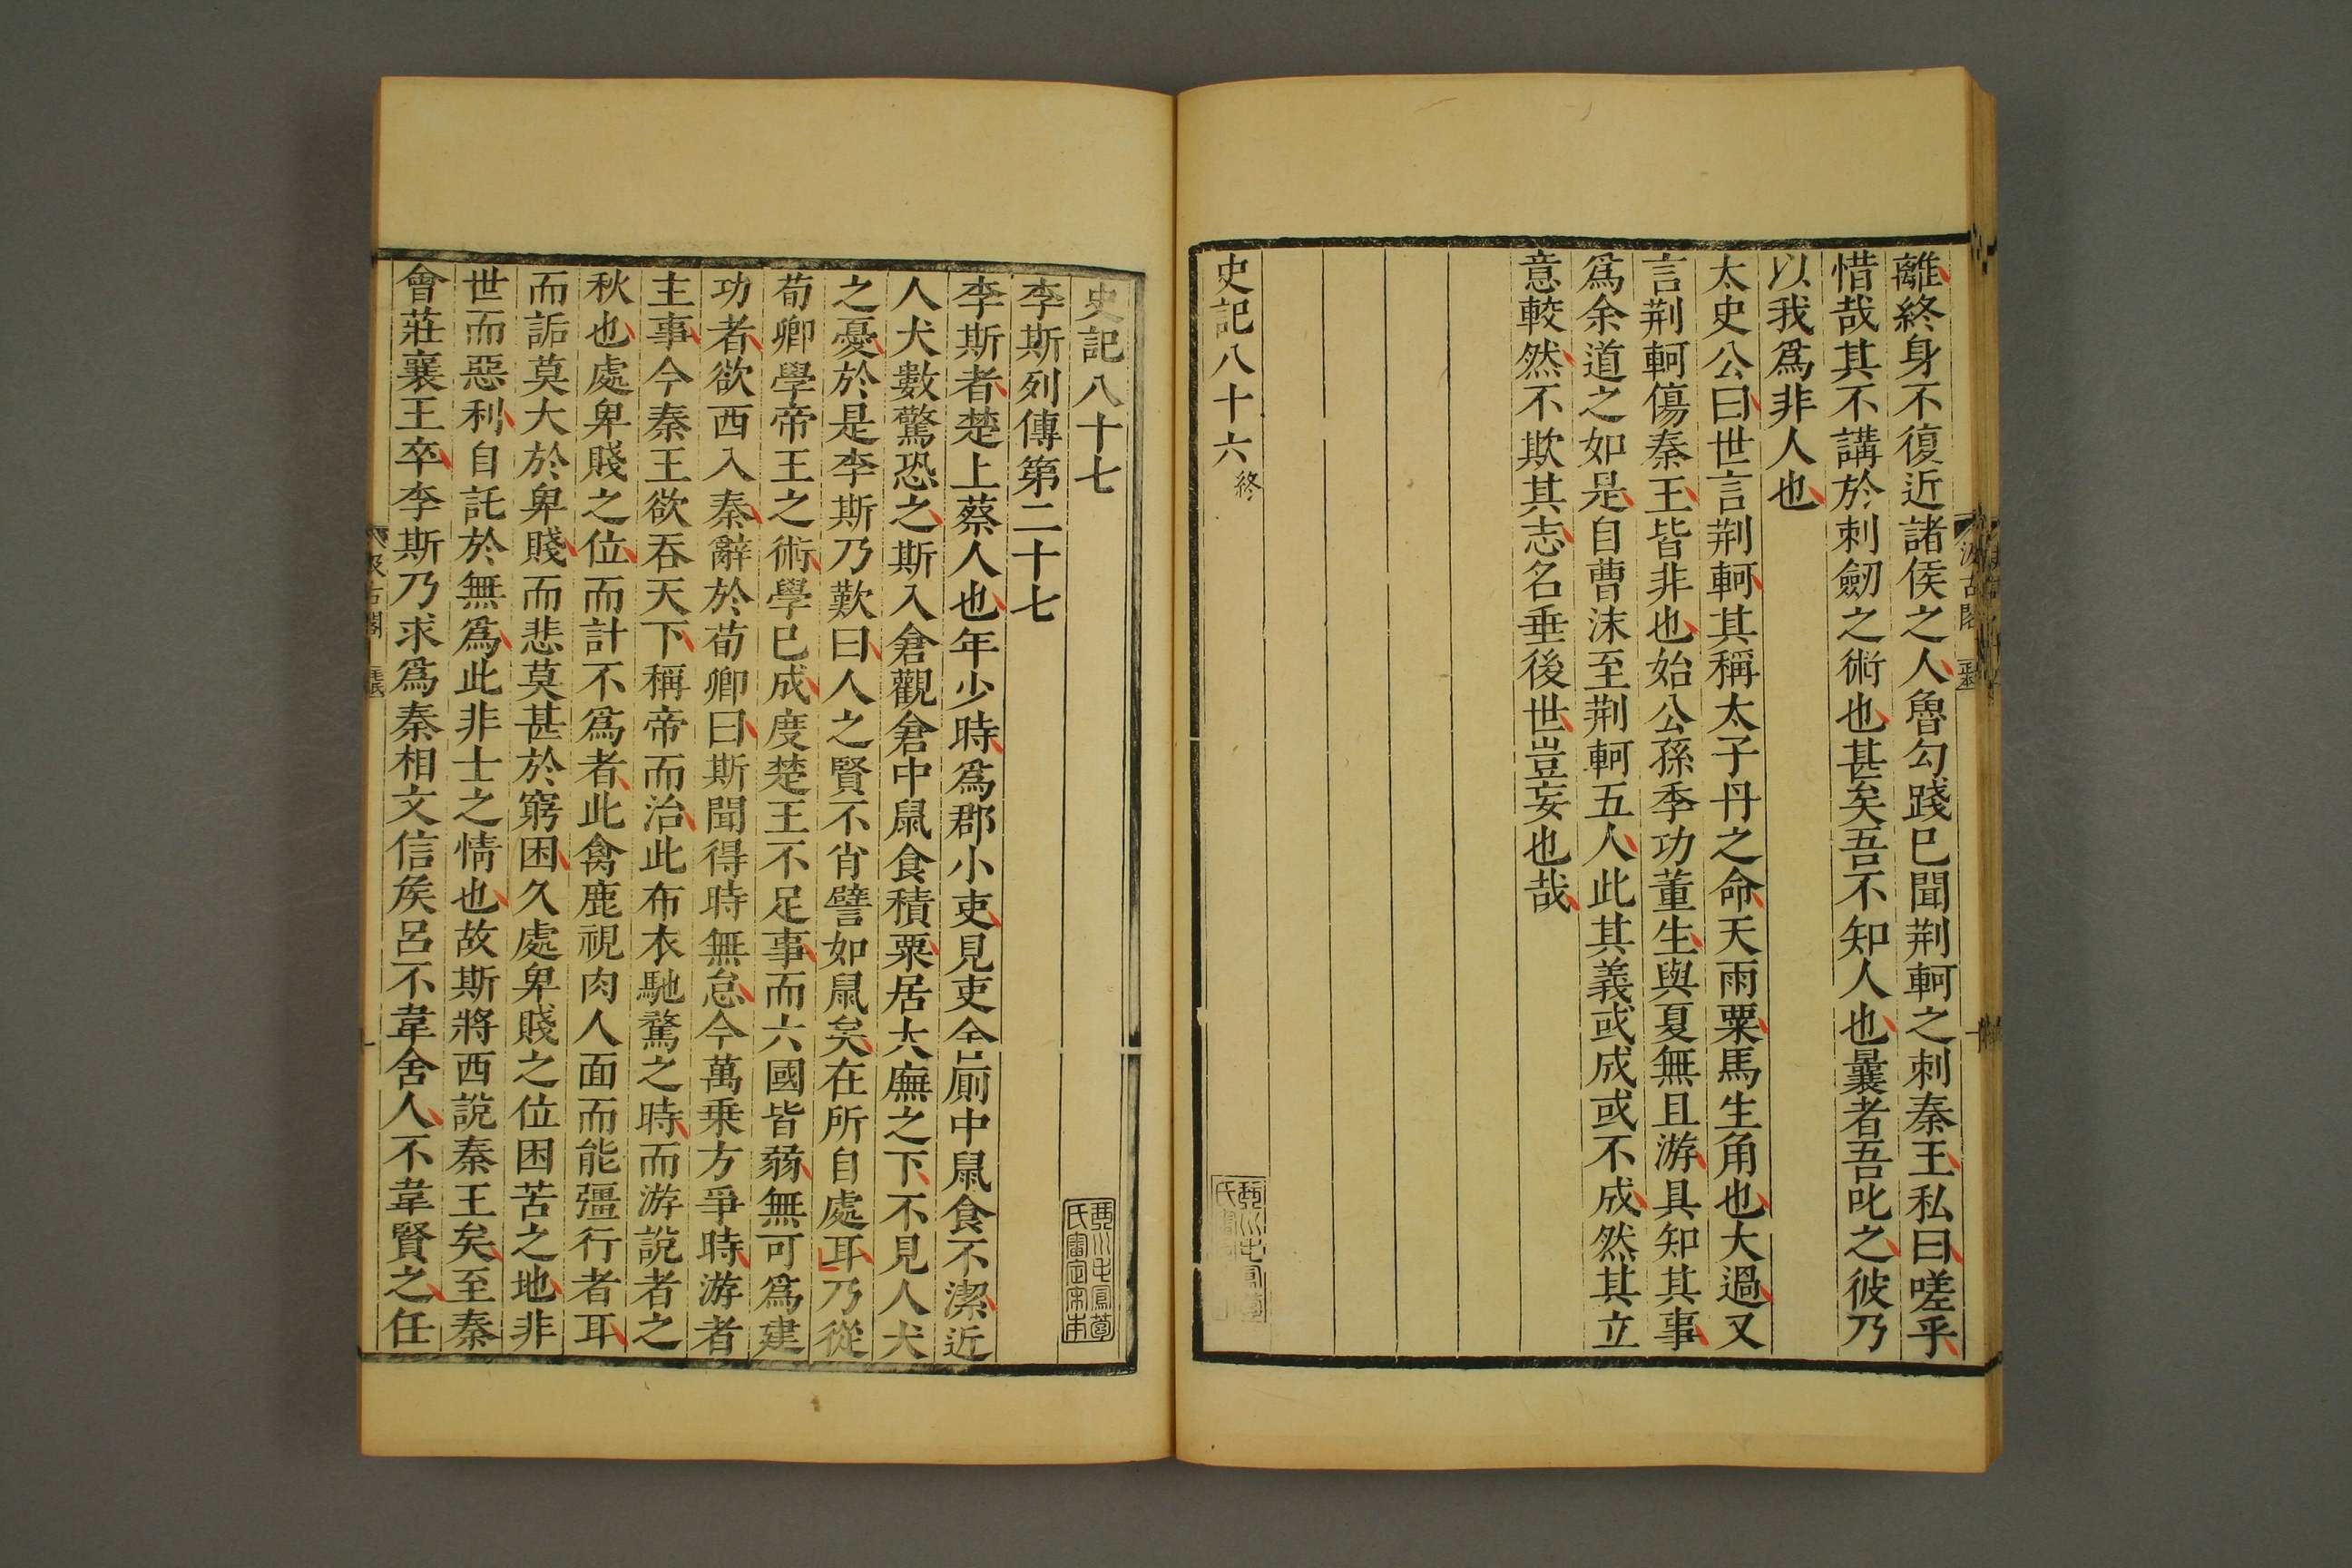 離終身不復近諸侯之人魯勾踐已聞荆軻之刺秦王私曰嗟乎
惜哉其不講於刺劒之術也甚矣吾不知人也曩者吾叱之彼乃
以我爲非人也
太史公曰世言荆軻其稱太子丹之命天雨粟馬生角也大過又
言荆軻傷秦王皆非也始公孫季功董生與夏無且游具知其事
爲余道之如是自曹沫至荆軻五人此其義或成或不成然其立
意較然不欺其志名垂後世豈妄也哉
史記八十六終
史記八十七
李斯列傳第二十七
李斯者楚上蔡人也年少時爲郡小吏見吏舍廁中鼠食不潔近
人犬數驚恐之斯入倉觀倉中鼠食積粟居大廡之下不見人犬
之憂於是李斯乃歎曰人之賢不肖譬如鼠矣在所自處耳乃從
荀卿學帝王之術學已成度楚王不足事而六國皆弱無可爲建
功者欲西入秦辭於荀卿曰斯聞得時無怠今萬乗方爭時游者
主事今秦王欲吞天下稱帝而治此布衣馳騖之時而游說者之
秋也處卑賤之位而計不爲者此禽鹿視肉人面而能彊行者耳
而詬莫大於卑賤而悲莫甚於窮困久處卑賤之位困苦之地非
世而惡利自託於無爲此非士之情也故斯將西說秦王矣至秦
會莊襄王卒李斯乃求爲秦相文信矦呂不韋舍人不韋賢之任
汲古閣